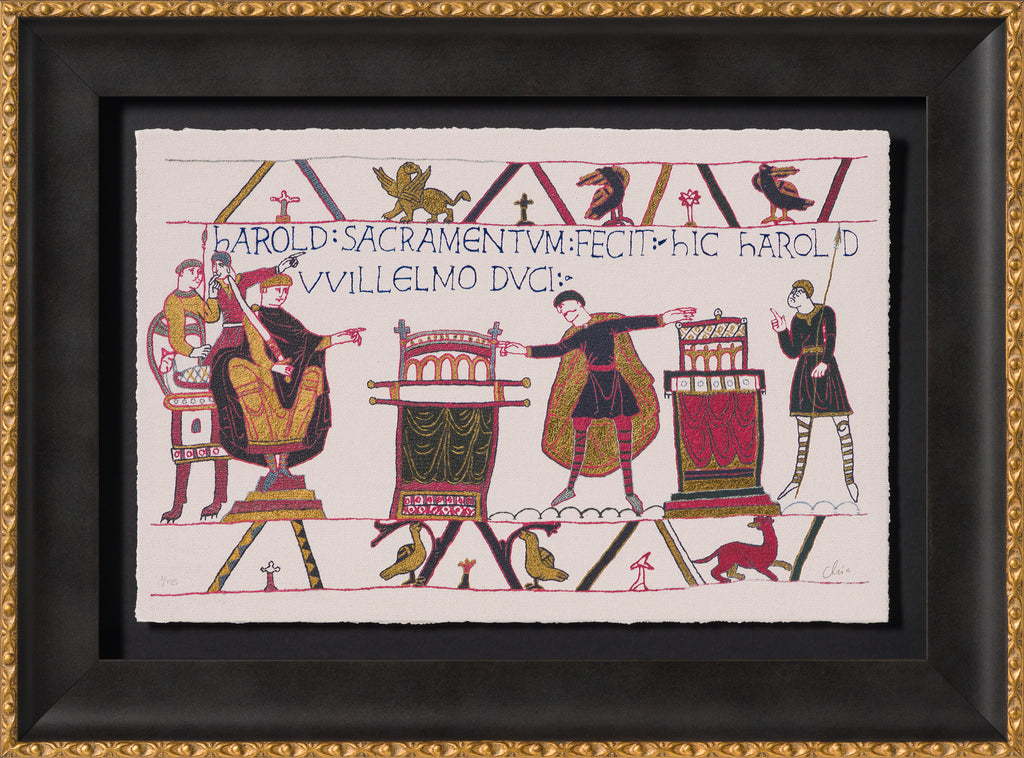 hAROLD:SACRAMENTVM:FECIT:hIC hAROLD
VVILLELMO DVCI: